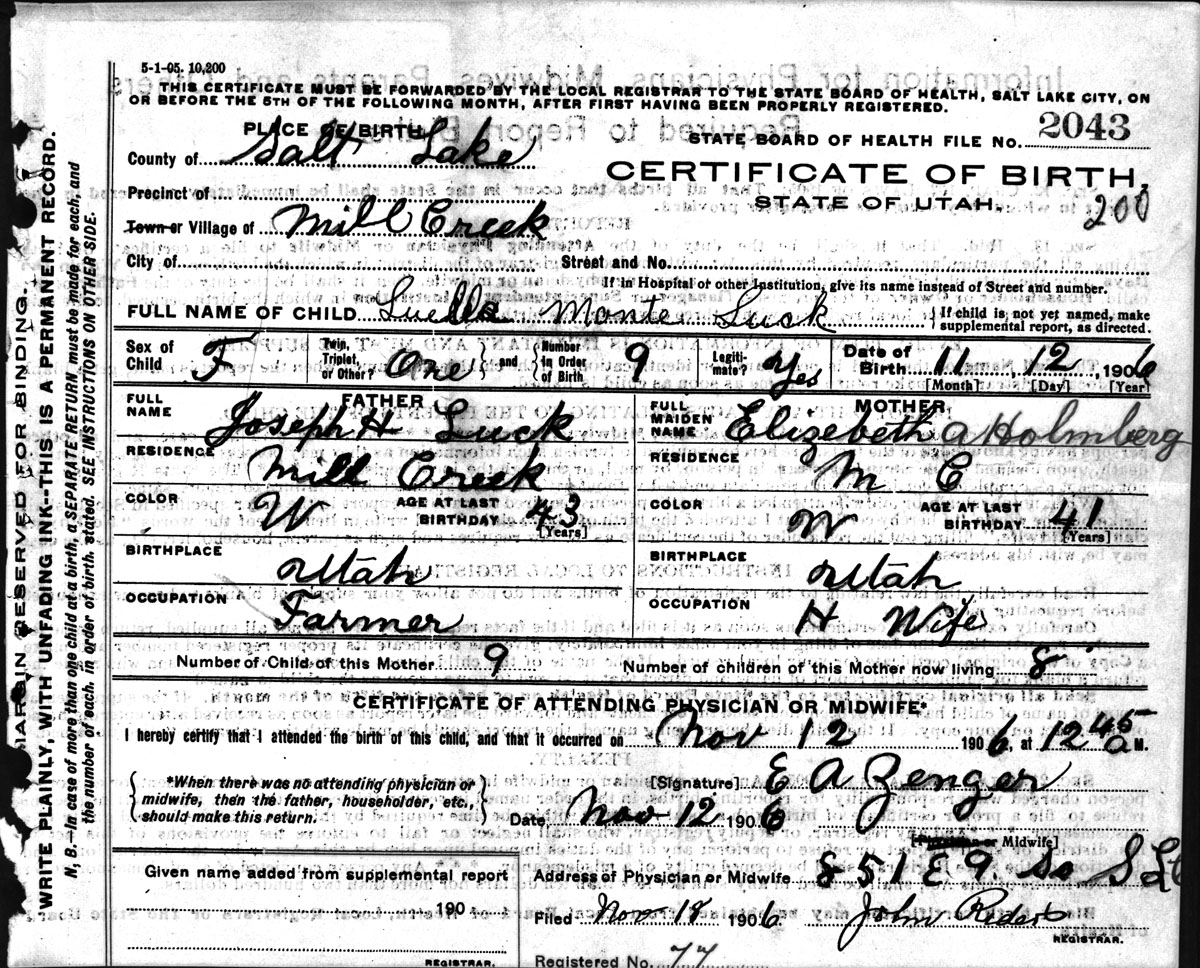 5-1-05. 10,200
THIS CERTIFICATE MUST BE FORWARDED BY THE LOCAL REGISTRAR TO THE STATE BOARD OF HEALTH, SALT LAKE CITY, ON
OR BEFORE THE 5TH OF THE FOLLOWING MONTH, AFTER FIRST HAVING BEEN PROPERLY REGISTERED.
PLACE OF BIRTH
STATE BOARD OF HEALTH FILE NO. 2043
County of Salt Lake
CERTIFICATE OF BIRTH,
Precinct of
STATE OF UTAH.
200
Town or Village of Mill Creek
City of Street and No.
If in Hospital or other Institution, give its name instead of Street and number.
FULL NAME OF CHILD Luella Monte Luck
If child is not yet named, make
supplemental report, as directed.
Sex of Child F
Twin, Triplet, or Other? One and Number in Order of Birth 9
Legiti-mate? Yes
Date of Birth 11 12, 1906
[Month] [Day] [Year]
FATHER
FULL NAME Joseph H Luck
RESIDENCE Mill Creek
COLOR W AGE AT LAST BIRTHDAY 43
[Years]
BIRTHPLACE Utah
OCCUPATION Farmer
MOTHER
FULL MAIDEN NAME Elizebeth A Holmberg
RESIDENCE M C
COLOR W AGE AT LAST BIRTHDAY 41
[Years]
BIRTHPLACE Utah
OCCUPATION H Wife
Number of Child of this Mother 9 Number of children of this Mother now living 8
CERTIFICATE OF ATTENDING PHYSICIAN OR MIDWIFE*
I hereby certify that I attended the birth of this child, and that it occurred on Nov 12 1906, at 12 45 a M.
*When there was no attending physician or
midwife, then the father, householder, etc.,
should make this return.
[Signature] E A Zenger
Date Nov 12 1906
[Physician or Midwife]
Given name added from supplemental report
190
REGISTRAR.
Address of Physician or Midwife 851 E 9. So S L
Filed Nov 18 1906 John
REGISTRAR.
Registered No. 77
MARGIN RESERVED FOR BINDING.
WRITE PLAINLY, WITH UNFADING INK--THIS IS A PERMANENT RECORD.
N. B.—In case of more than one child at a birth, a SEPARATE RETURN must be made for each, and
the number of each, in order of birth, stated. SEE INSTRUCTIONS ON OTHER SIDE.